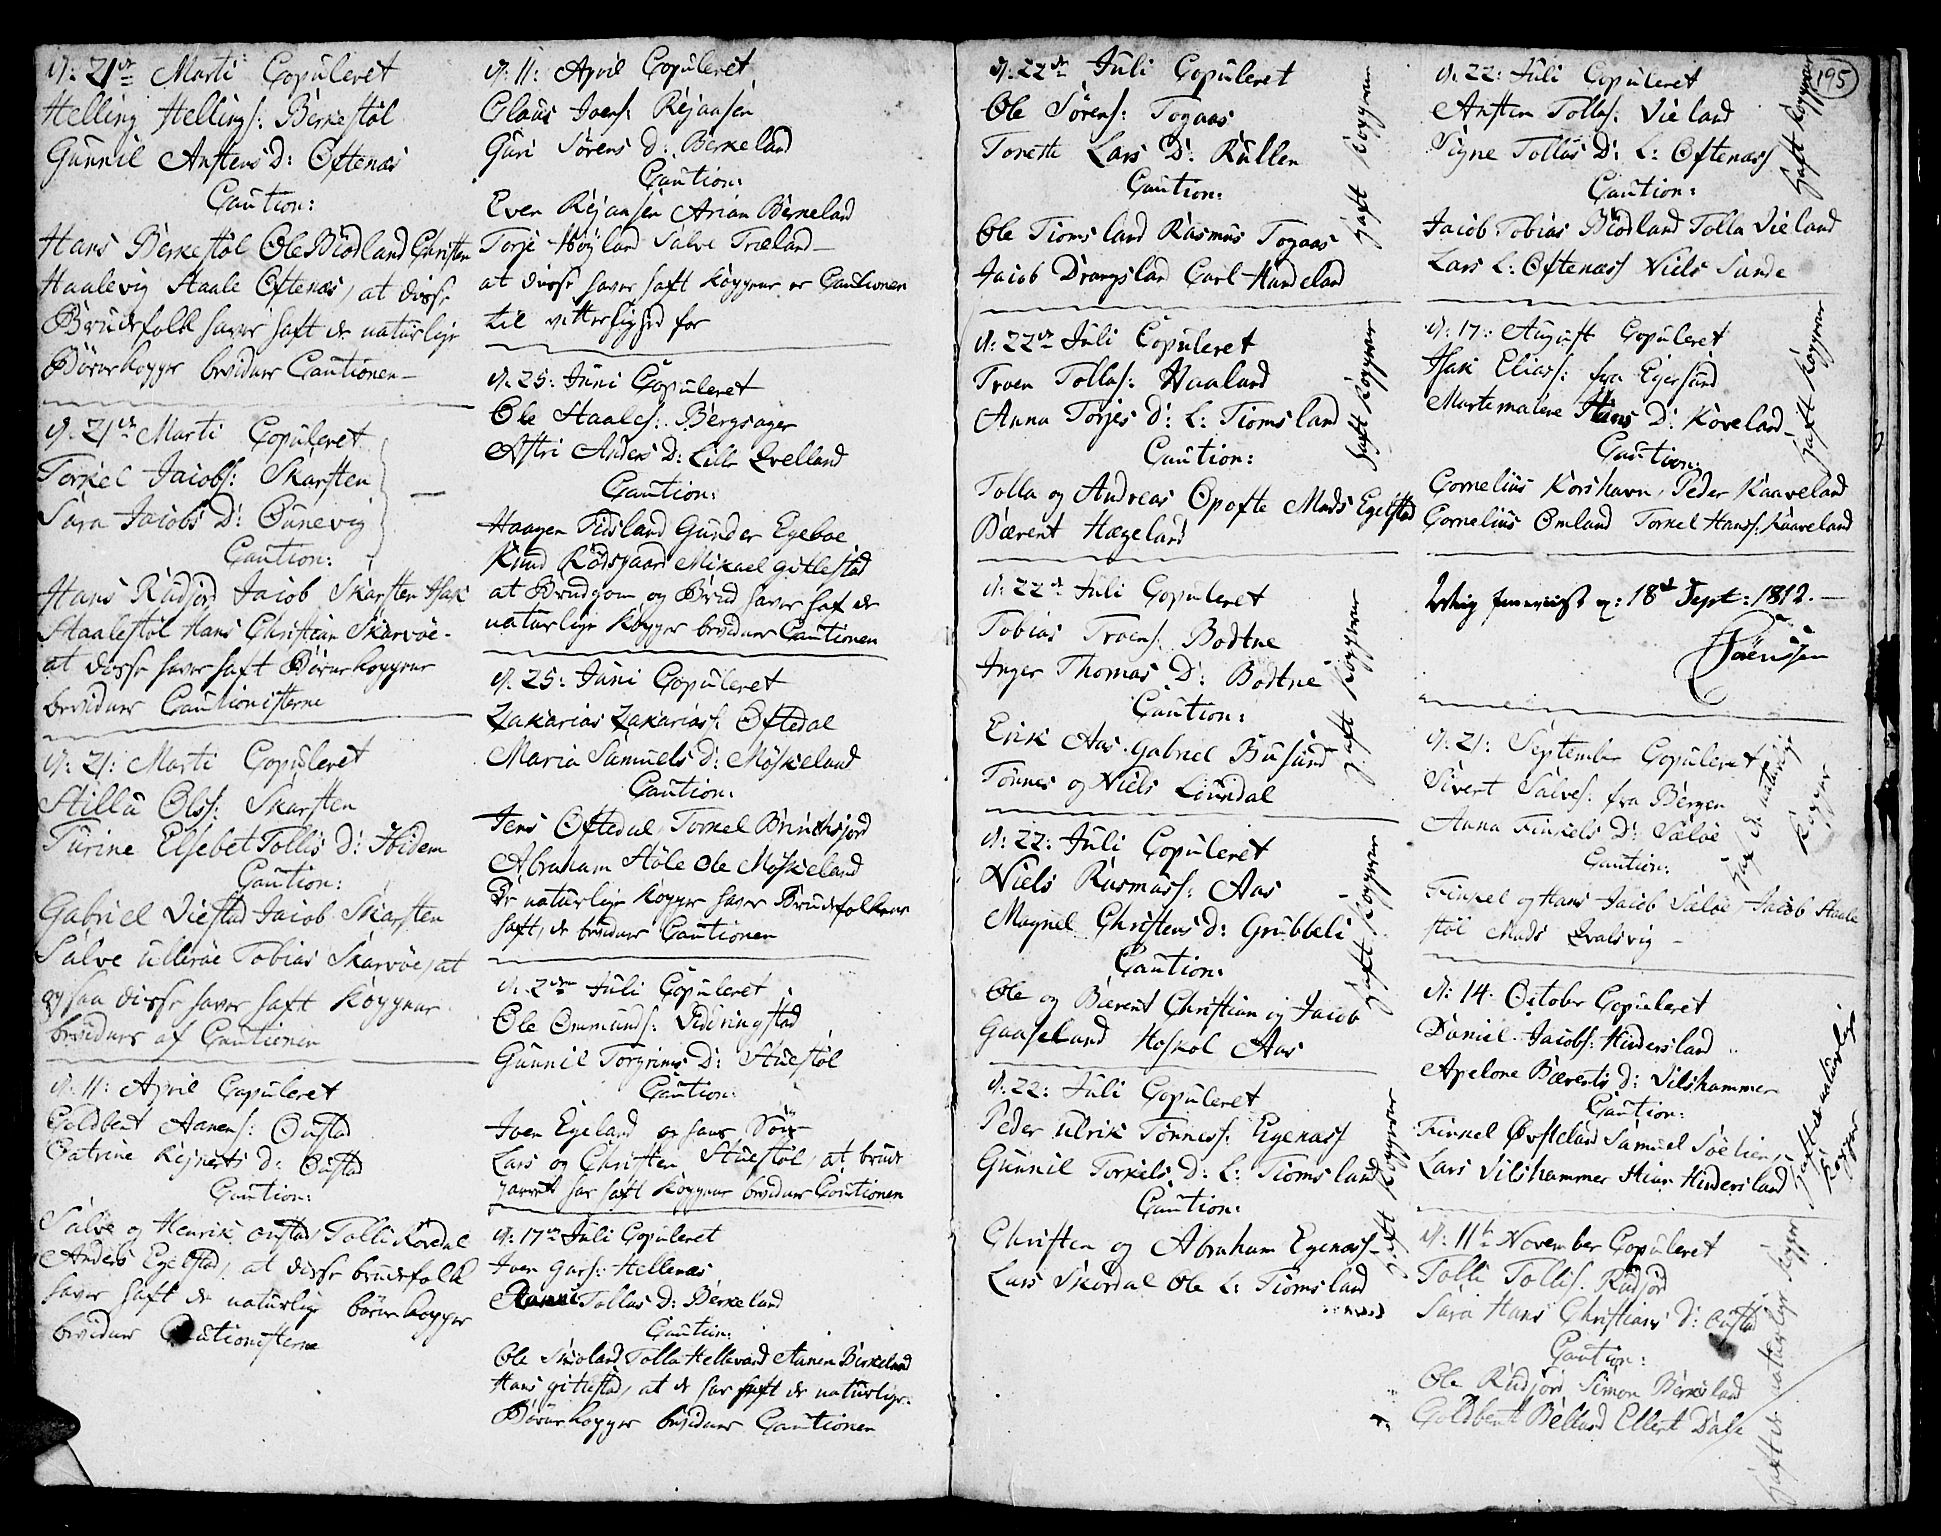 d: 21de Marti Copuleret
Helling Hellings: Berkestøl
Gunnil Anstens D: Oftenæs
Caution:
Hans Berkestøl Ole Blodland Christen
Haalevig Staale Oftenæs, at disse
Brudefolk haver haft de naturlige
Børnekopper bevidner Cautionen
d. 21de Marti Copuleret
Torkel Jacobs: Skarsten
Sara Jacobs D: Ounevig
Caution:
Hans Rudjord Jacob Skarsten Isak
Staalestøl Hans Christian Skarvøe
at disse haver haft Børnekopperne
bevidner Cautionisterne
d: 21: Marti Copuleret
Stillu Ols: Skarsten
Turine Elsebet Tollis D: Hidem
Caution:
Gabriel Viestad Jacob Skarsten
Salve Ullerøe Tobias Skarvøe, at
ogsaa disse haver haft Kopperne
bevidnes af Cautionen
d: 11: April Copuleret
Goldbent Aanens: Oustad
Catrine Rejnerts D: Oustad
Caution:
Salve og Henrik Oustad, Tolli Rørdal
Anders Egelstad, at disse brudefolk
haver haft de naturlige børnekopper
bevidner Cautionisterne
d: 11: April Copuleret
Claus Joens: Rejaasen
Guri Sørens D: Berkeland
Caution:
Even Rejaasen Arian Berkeland
Torje Høyland Salve Træland
at disse haver haft Kopperne er Cautionen
til vitterlighed for
d. 25: Juni Copuleret
Ole Staales: Bergsager
Astri Anders D: Lille Qvelland
Caution:
Haagen Fidsland Gunder Egeboe
Knud Rødsgaard Mikael Gitlestad
at Brudgom og Brud haver haf de
naturlige Kopper bevidner Cautionen
d. 25: Juni Copuleret
Zakarias Zakarias: Oftedal
Maria Samuels D: Møskeland
Caution:
Jens Oftedal, Torkel Brinchsjord
Abraham Støle Ole Møskeland
De naturlige Kopper haver Brudefolkene
haft, de bevidner Cautionen
d. 2den Juli Copuleret
Ole Ommunds: Viddringstad
Gunnil Torgrims D: Stuestøl
Caution:
Iven Egeland og hans Søn
Lars og Christen Stuestøl, at brude
parret har haft Kopperne bevidner Cautionen
d: 17de Juli Copuleret
Iven Gars: Hellenæs
Tollas D: Berkeland
Caution:
Ole Skoland Tolla Hellevard Aanen Berkeland
Hans Gitlestad, at de har haft de naturlige
Børnekopper bevidner Cautionen
d: 22de Juli Copuleret
Ole Sørens: Togaas
Tonette Lars D: Kullen
Caution:
Ole Tiomsland Rasmus Togaas
Jacob Drangsland Carl Handeland
haft Kopperne
d: 22de Juli Copuleret
Troen Tollas: Haaland
Anna Torjes D: L: Tiomsland
Caution:
Tolla og Andreas Opofte Mads Egelstad
Bærent Hægeland
haft Kopperne
d: 22de Juli Copuleret
Tobias Troens: Bodtne
Inger Thomas D: Bodtne
Caution:
Erik Aas Gabriel Busund
Tønnes og Niels Lounдal
haft Kopperne
d: 22: Juli Copuleret
Niels Rasmuss: Aas
Magnel Christens D: Grubbeli
Caution:
Ole og Bierent Christian og Jacob
Gaaseland Haskol Aas
haft Kopperne
d: 22: Juli Copuleret
Peder Ulrik Tønness: Egenæss
Gunnil Torkels D: L: Tiomsland
Caution:
Christen og Abraham Egenæss
Lars Skordal Ole L: Tiomsland
haft Kopperne
195
d. 22: Juli Copuleret
Ansten Tollas: Vieland
Signe Tollas D: L: Oftenæss
Caution:
Jacob Tobias Blodland Tolla Vieland
Lars L: Oftenæss Niels Sunde
haft Kopperne
d: 17: August Copuleret
Isak Elias: fra Egersund
Martemalene Hans D: Koveland
Caution:
Cornelius Korshavn, Peder Kaaveland
Cornelius Omland Torkel Hanss: Kaaveland
haft Kopperne
d: 18de Sept: 1812.
Sørenssen
d. 21: September Copuleret
Sivert Salves: fra Bergen
Anna Finkels D: Sæløe
Caution:
Finkel og Hans Jacob Sæløe Jacob Staale
støl Mads Qvalsvig
haf de naturlige
Kopper
d: 14. October Copuleret
Daniel Jacobs: Hindersland
Apelone Bærents D: Vilshammer
Caution:
Finkel Øvsteland Samuel Søelien
Lars Vilshammer Hinr Hindersland
haft de naturlige
Kopper
d: 11te November Copuleret
Tolli Tollis: Rudjord
Sara Hans Christians D: Oustad
Caution:
Ole Rudjord Simon Berkeland
Goldbent Belland Ellert Dale
haft de naturlige Kopper